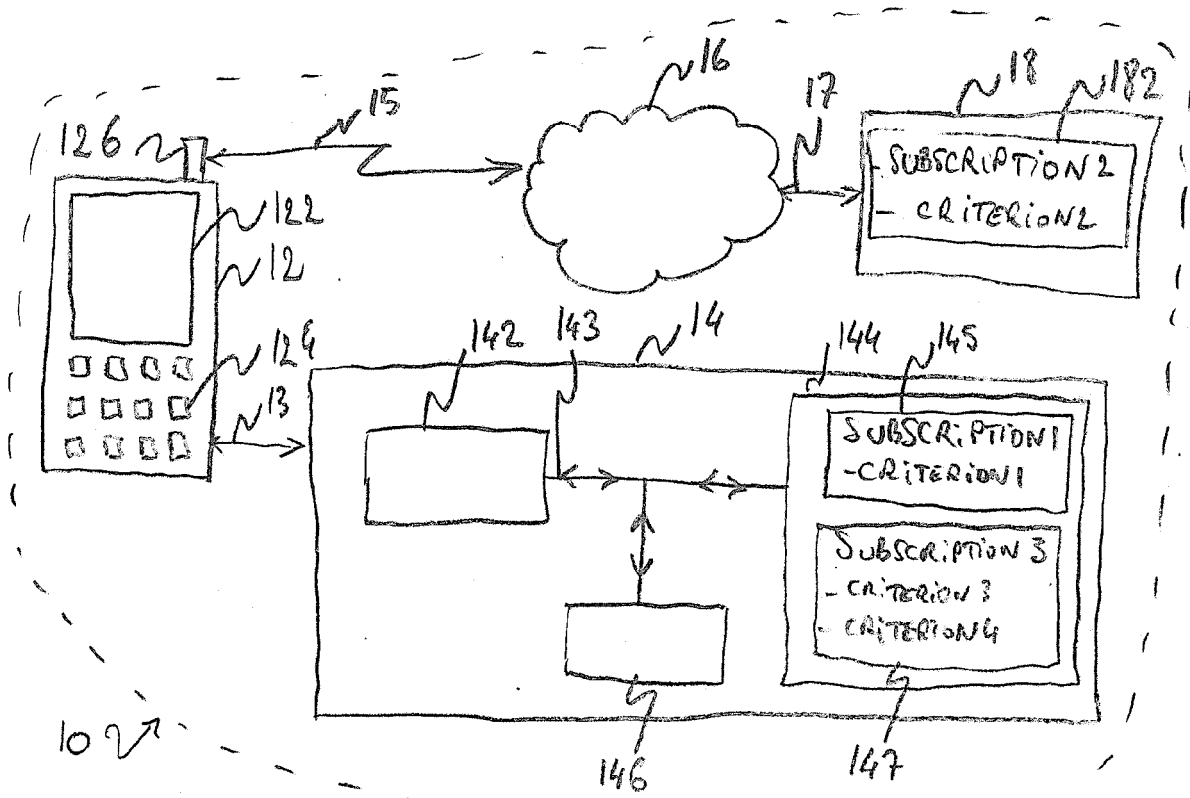 16
18
182
17
15
126
- SUBSCRIPTION 2
- CRITERION 2
122
12
142
143
14
144
145
124
13
SUBSCRIPTION 1
- CRITERION 1
SUBSCRIPTION 3
- CRITERION 3
- CRITERION 4
10
146
147